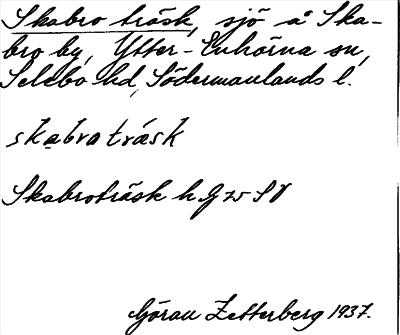 Skabro träsk, sjö å Ska-
bro by, Ytter-Enhörna sn,
Selebo hd, Södermanlands l.
skabra träsk
Skabroträsk h G
Göran Zetterberg 1937.